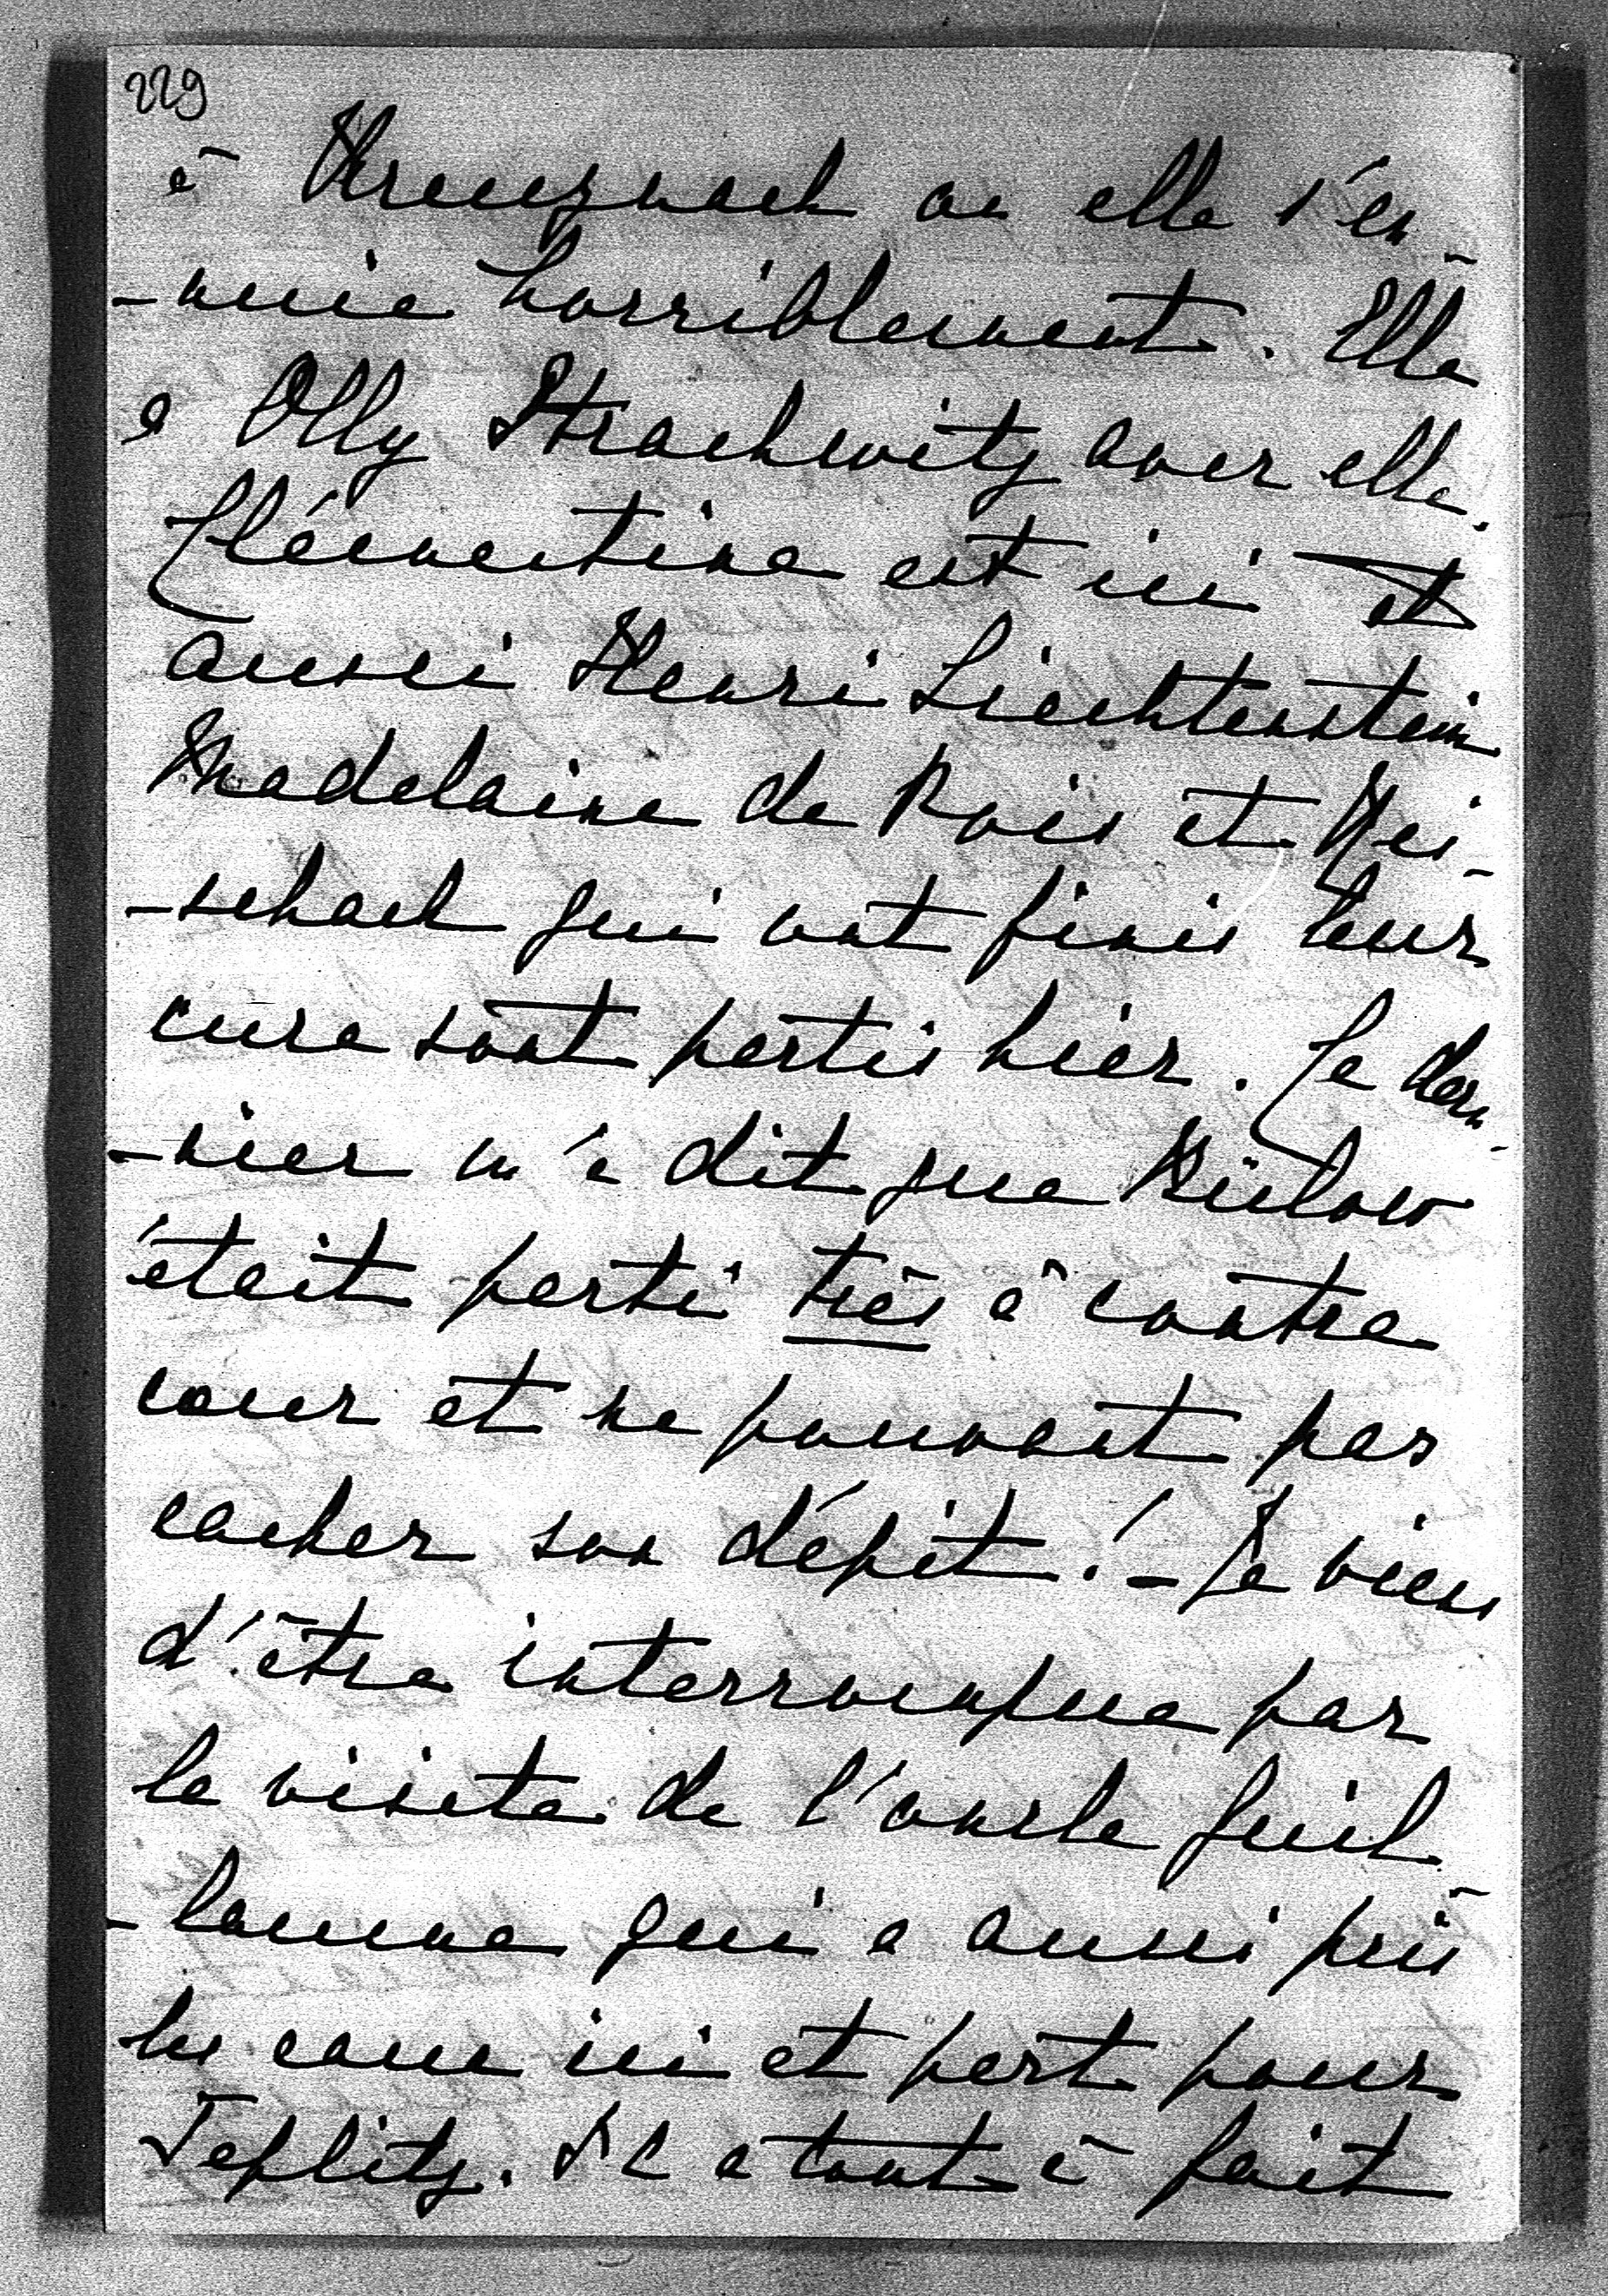 229
à Kreuznach ou elle s'en-
-nuie horriblement. Elle
a Olly Strachwitz avec elle.
Clémentine est ici et
aussi Henri Liechtenstein
Madelaine de et Rei-
-schach qui ont finis leur
cure sont partis hier. Le der-
-nier m'a dit que Bülow
était parti très à contre
coeur et ne pouvant pas
cacher son dépit! – Je viens
d'être interrompue par
la visite de l'oncle Guil-
-laume qui a aussi pris
les eaux ici et part pour
Teplitz. Il a tout-à fait